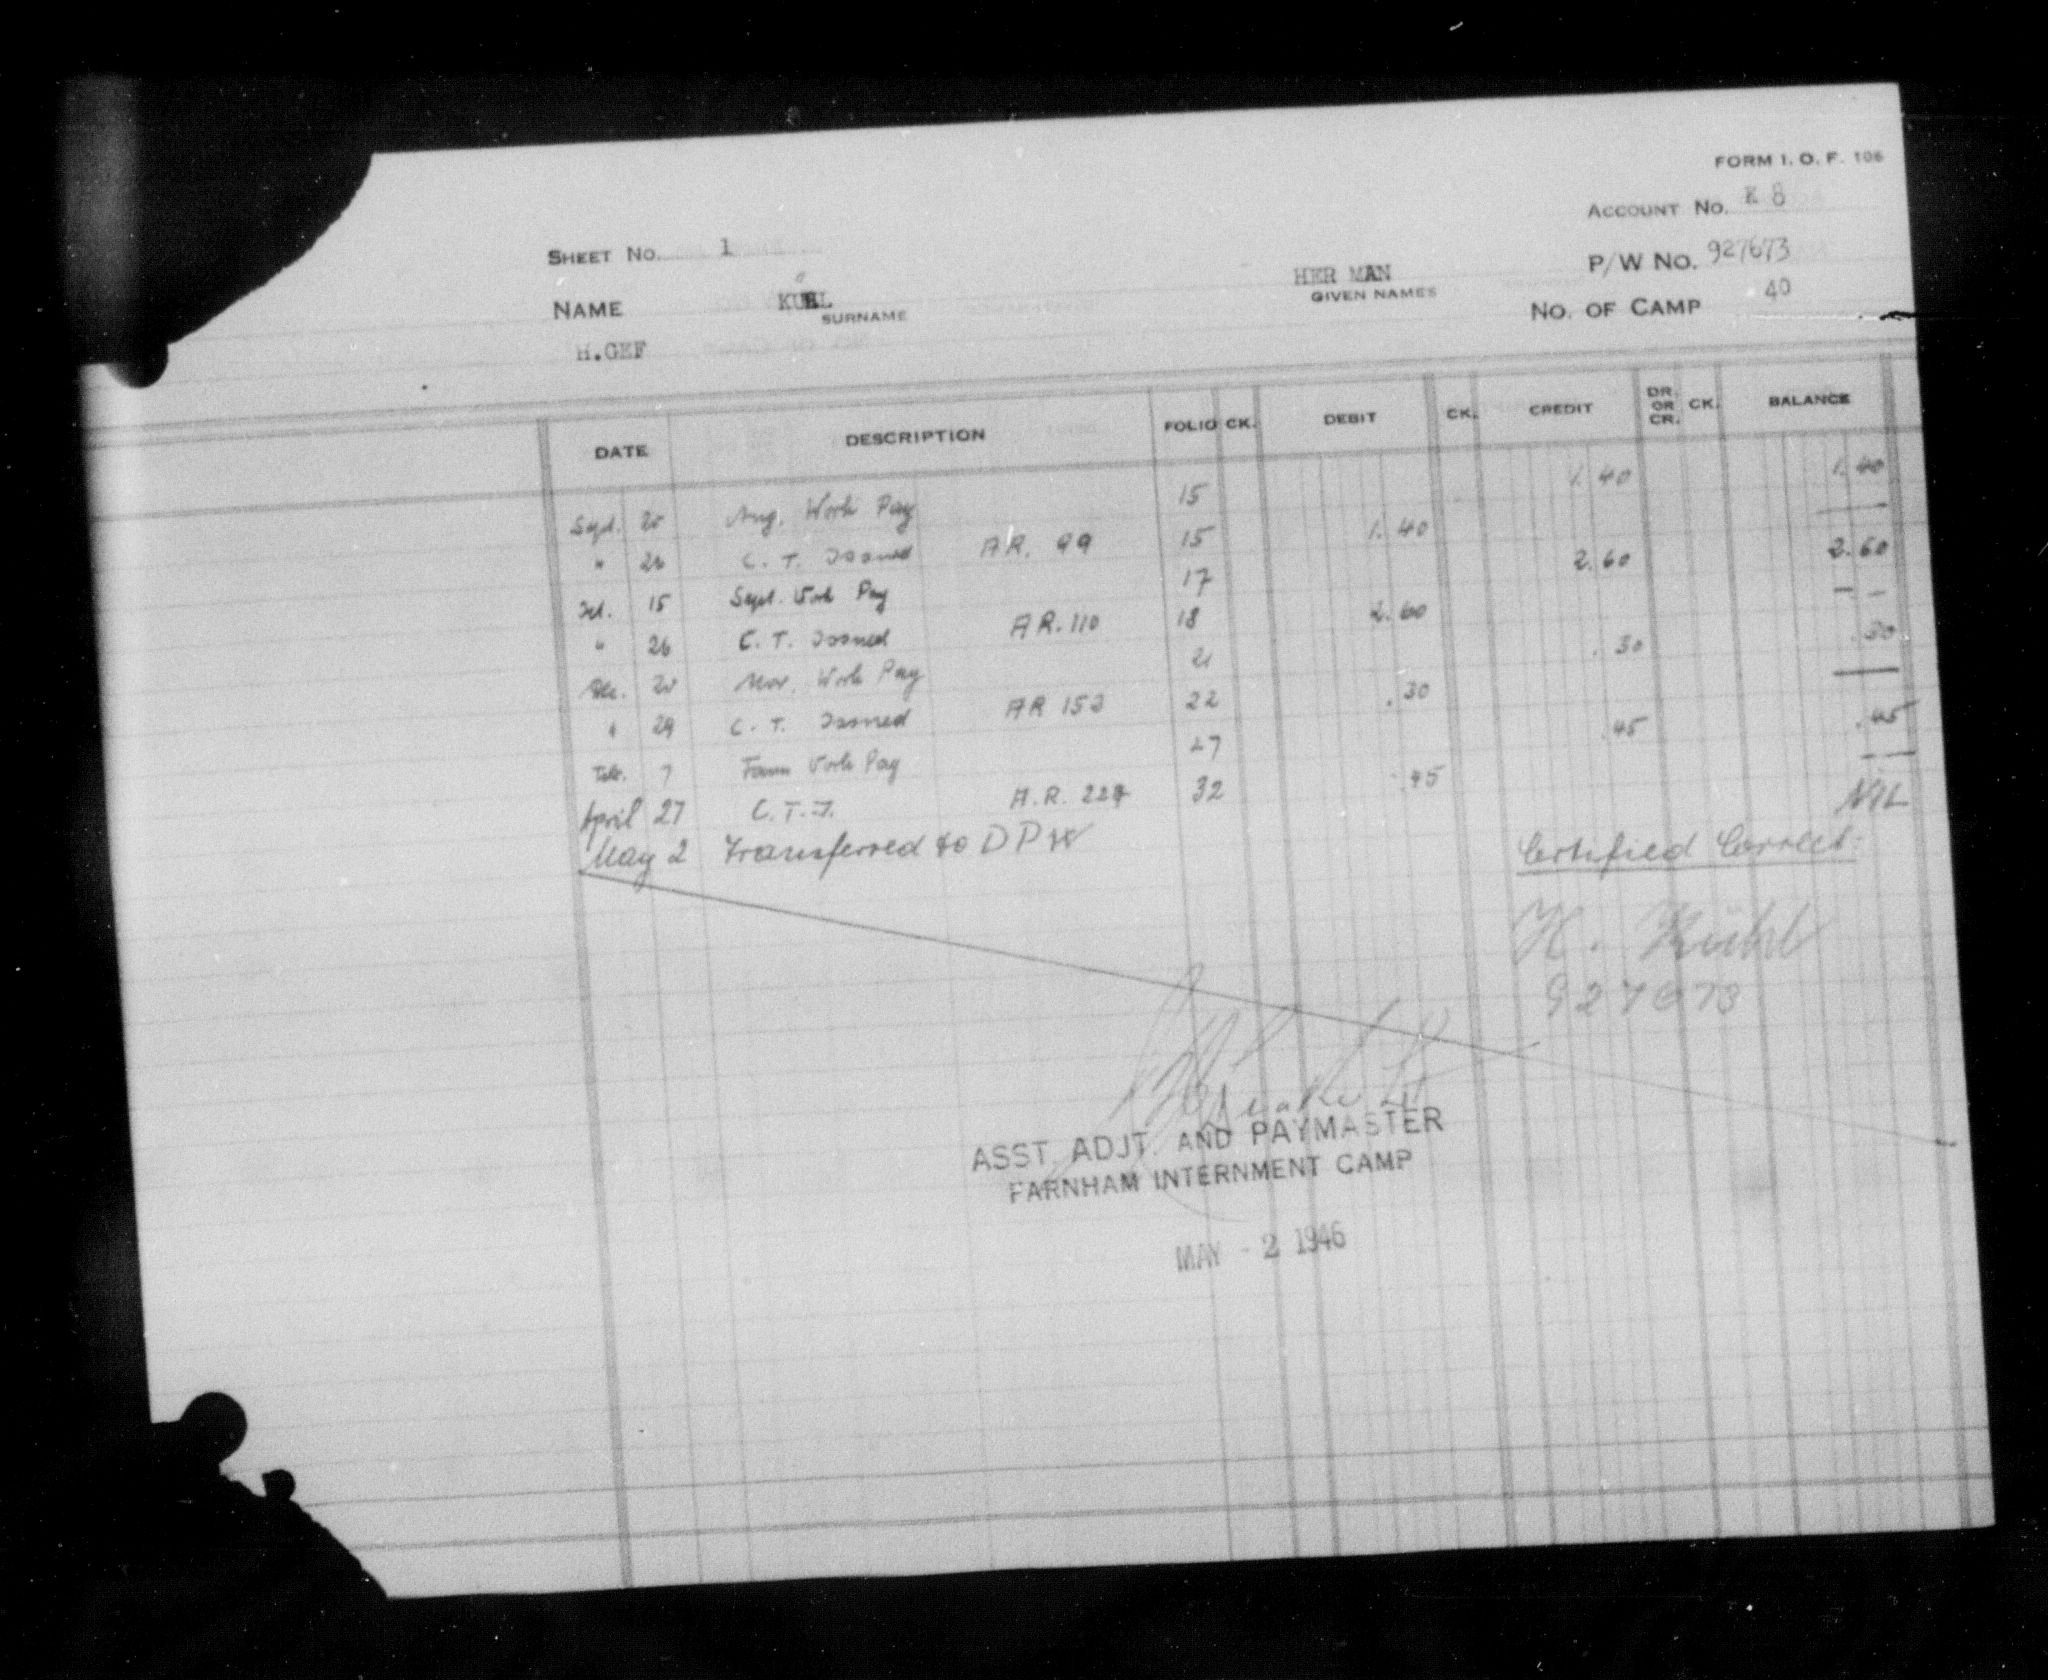 FORM I. O. F. 106
ACCOUNT No. K 8
SHEET No. 1
P/W No. 927673
NAME KUHL HER MAN
SURNAME GIVEN NAMES
No. OF CAMP 40
H.GEF
DATE DESCRIPTION FOLIO CK. DEBIT CK. CREDIT DR. OR CR. CK. BALANCE
Sept. Aug. Work Pay 15 1.40 1.40
" 26 C. T. Issued AR. 99 15 1.40
Oct. 15 Sept. Work Pay 17 2.60 2.60
" 26 C. T. Issued AR. 110 18 2.60
Dec. Nov. Work Pay 21 .30 .30
" 29 C. T. Issued AR 22 .30
7 Work Pay 27 .45 .45
April 27 C.T.I. A.R. 32 .45 NIL
May 2 Transferred to DPW
Certified Correct:
H. Kühl
927673
ASST. ADJT. AND PAYMASTER
FARNHAM INTERNMENT CAMP
MAY - 2 1946